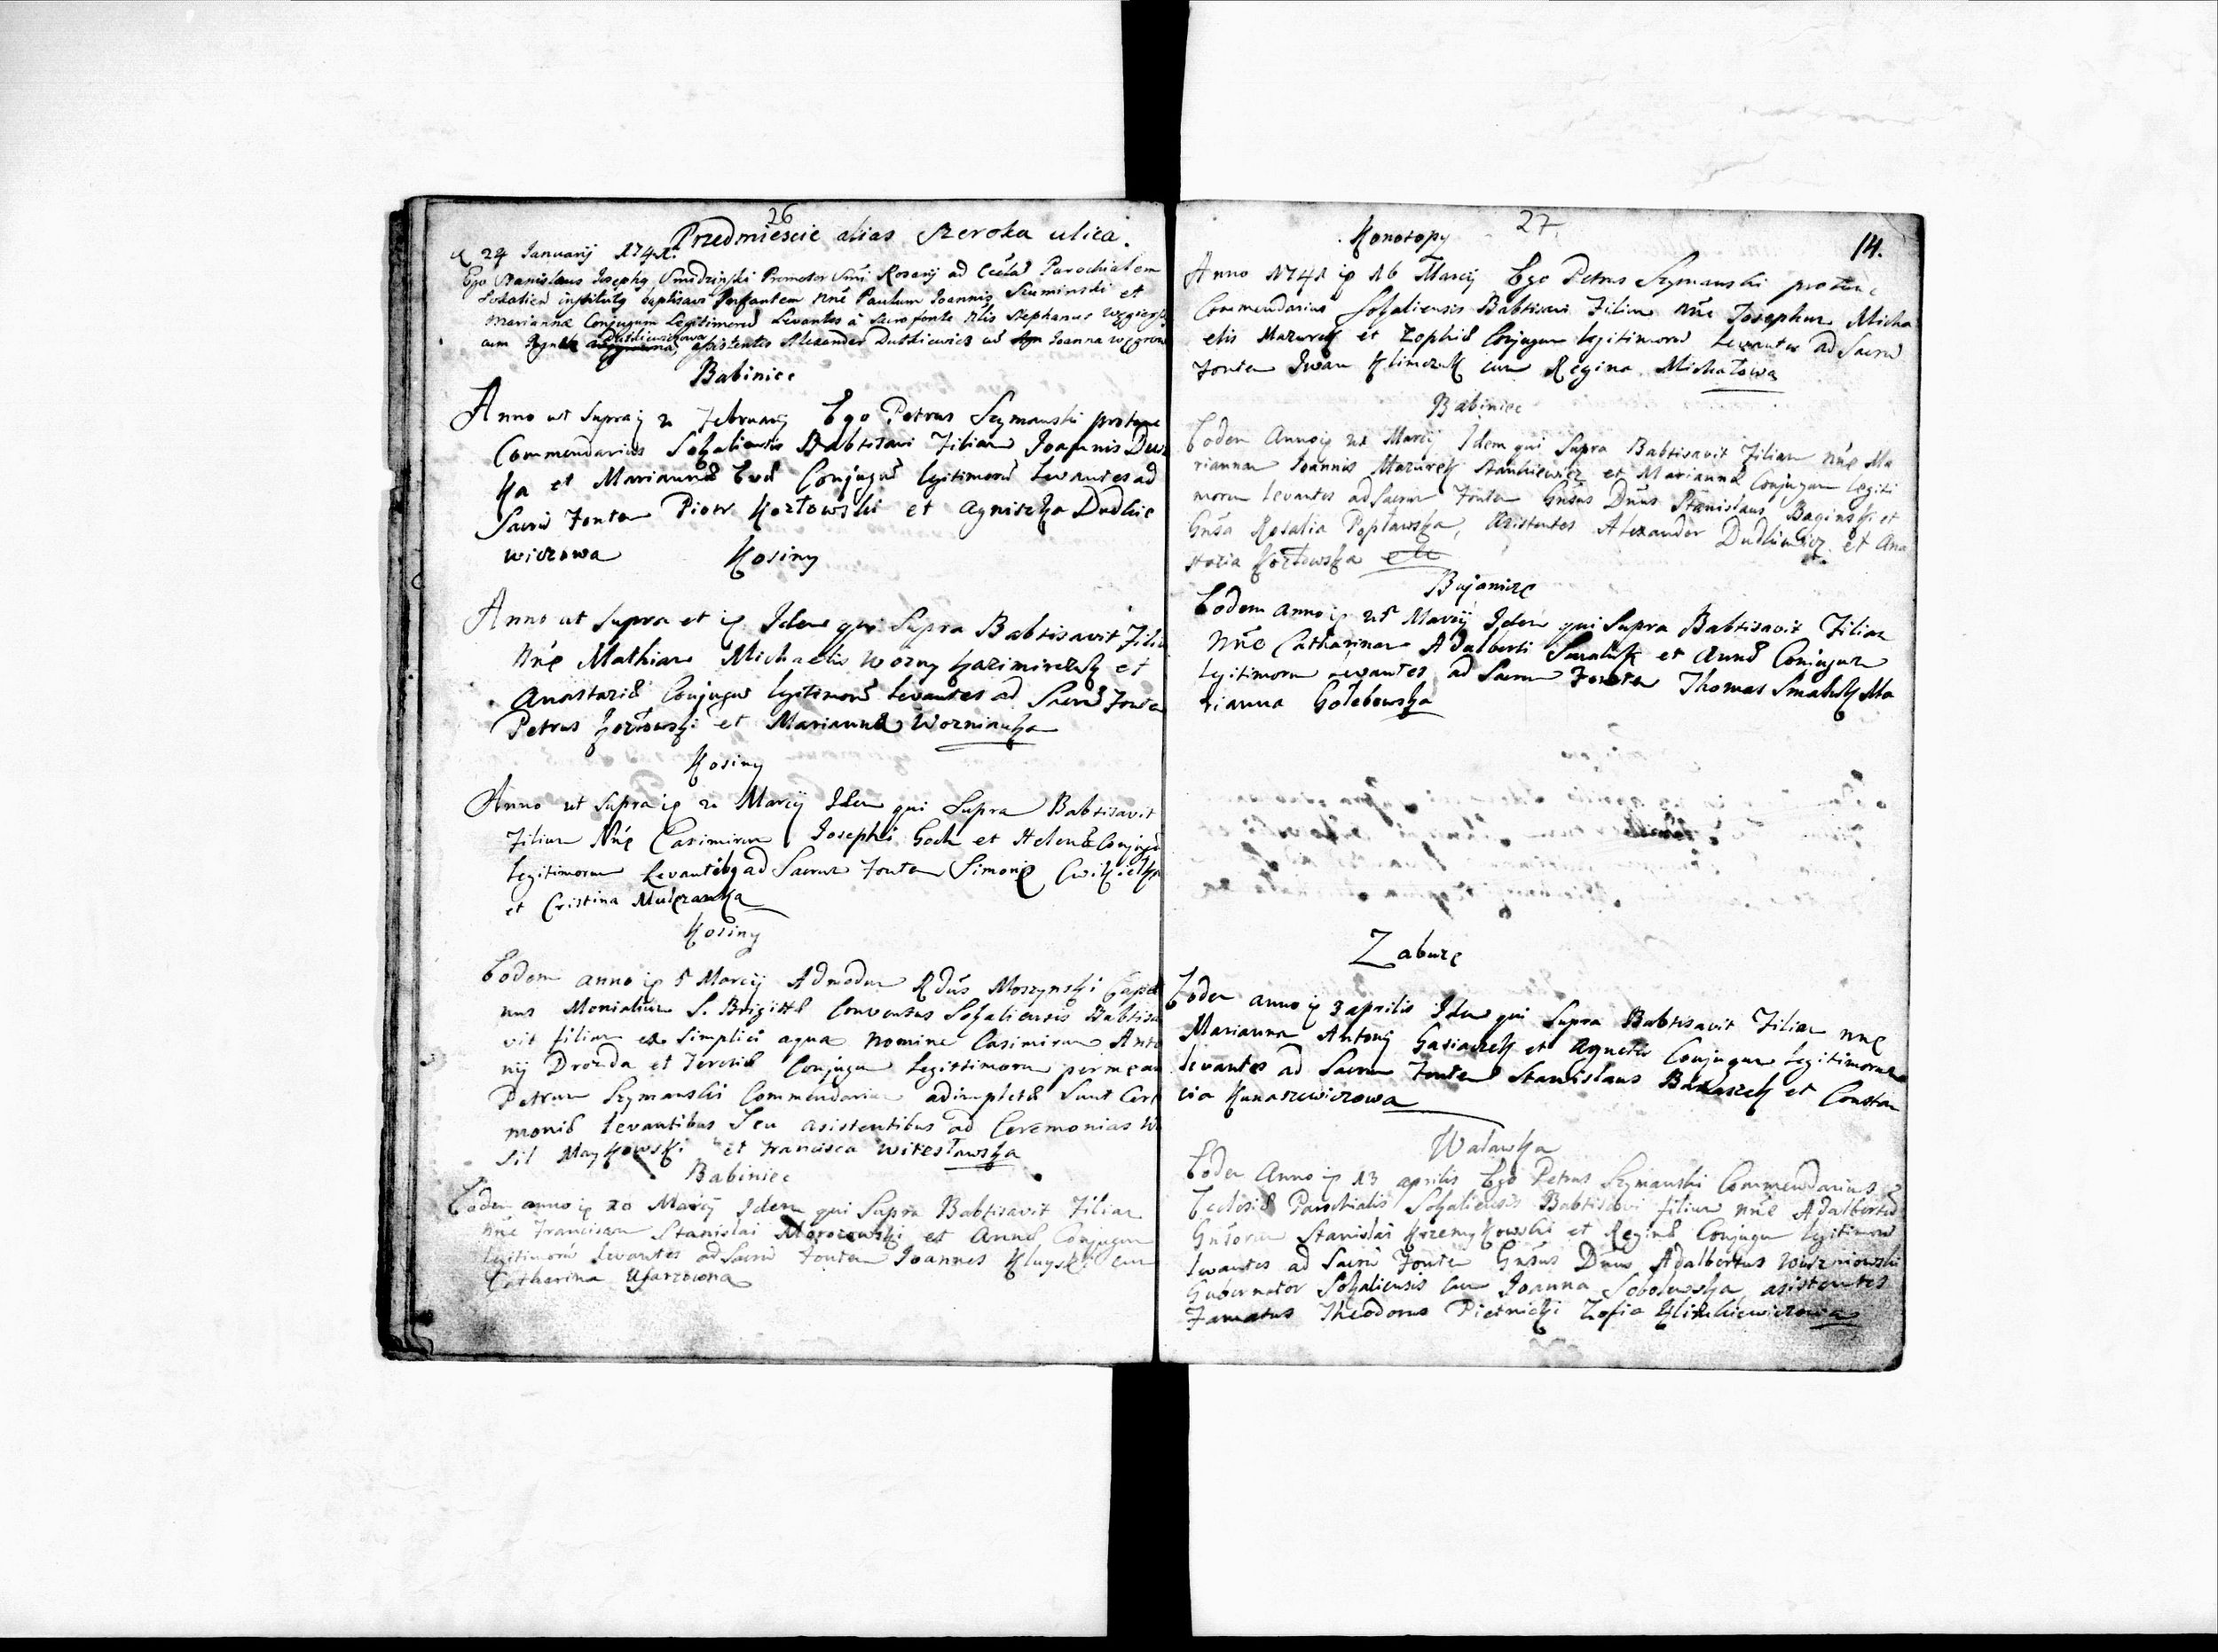 26
Przedmiescie alias szeroka ulica.
24 Januarij 1741
Ego Stanislaus Josephq Smidzinski Promotor Smi Rosarij ad Ecclã Parochialem
Sokalien institutq baptisavi Infantem nñe Paulum Joannis Szuminski et
Mariannæ Conjugum Legitimorũ Levantes à Sacro fonte Stephanus
cum Dutkiewiczowa assistentes Alexander Dutkiewicz Joanna
Babiniec
Anno ut supra 2 February Ego Petrus Szymanski protunc
Commendarius Sokaliensis Babtisavi Filiam Joannis
ka et Mariannæ Conjugũ legitimorũ Levantes ad
Sacrũ Fontem Piotr Kozłowski et Agniszka Dudkie
wiczowa
Kosiny
Anno ut supra et Idem qui Supra Babtisavit Filiu
Nñe Mathiam Michaelis Wozny Kazimirczuk et
Anastaziæ Conjugum legitimorũ Levantes ad Sacrũ Fonte
Petrus Kozłowski et Marianna Wozniauka
Kosiny
Anno ut supra 2 Marcij Idem qui Supra Babtisavit
Filium Nñe Casimirum Josephi Goch et Helenæ Conjugũ
legitimorum Levantibq ad Sacrum Fontem Simone
et Cristina
Kosiny
Eodem anno 5 Marcij Admodum Rdũs Moszynski Capel
nus Monialium S. Brigittæ Conventus Sokaliensis Babtisa
vit filium ex Simplici aqua nomine Casimirum Anto
nij Drozda et Teresiæ Conjugum Legittimorum per me
Petrum Szymanski Commendarium adimpletæ Sunt Cere
moniæ levantibus Seu asistentibus ad Ceremonias Wa
sil Maykowski et Francisca Witesławska
Babiniec
Eodem anno 10 Marcij Idem qui Supra Babtisavit Filiam
nñe Franciscam Stanislai Morozewski et Annæ Conjugum
legitimorũ Levantes ad Sacrũ Fontem Joannes cum
Catharina
27
14.
Konotopy
Anno 1741 16 Marcij Ego Petrus Szymanski protunc
Commendarius Sokaliensis Babtisavi Filium Nñe Josephum Micha
elis Mazurek et Zophiæ Conjugum legitimorũ Levantes ad Sacrũ
Fontem Iwan Klimczuk cum Regina Michałowa
Babiniec
Eodem Anno 21 Marcij Idem qui Supra Babtisavit Filiam nñe Ma
riannam Joannis Mazurek Stankiewicz et Mariannæ Conjugum legiti
morum Levantes ad Sacrum Fontem Gnsus Dnus Stanislaus Baginski et
Gnsa Rosalia Popławska, Asistentes Alexander Dudkiewicz et Ana
stazia Kozłowska
Bujanice
Eodem anno 25 Marcij Idem qui Supra Babtisavit Filiam
Nñe Catharinam Adalberti Smaluk et Annæ Conjugum
Legitimorum Levantes ad Sacrum Fontem Thomas Smaluk Ma
rianna Gołebowska
Zabuze
Eodem anno 3 aprilis Idem qui Supra Babtisavit Filiam nñe
Mariannam Antonij Gasiaczek et Agnetis Conjugum Legitimorum
levantes ad Sacrum Fontem Stanislaus et Constan
cia Kunaszewiczowa
Waławka
Eodem Anno 13 aprilis Ego Petrus Szymanski Commendarius
Eclesiæ Parochialis Sokaliensis Babtisavi filium nñe Adalbertũ
Gnsorum Stanislai Krzemykowski et Reginæ Conjugum legitimorũ
levantes ad Sacrũ Fontem Gnsus Dnus Adalbertus Wiszniowski
Gubernator Sokaliensis cum Joanna Sobolewska, asistentes
Famatus Theodorus Pietnicki Zofia Klimkiewiczowa